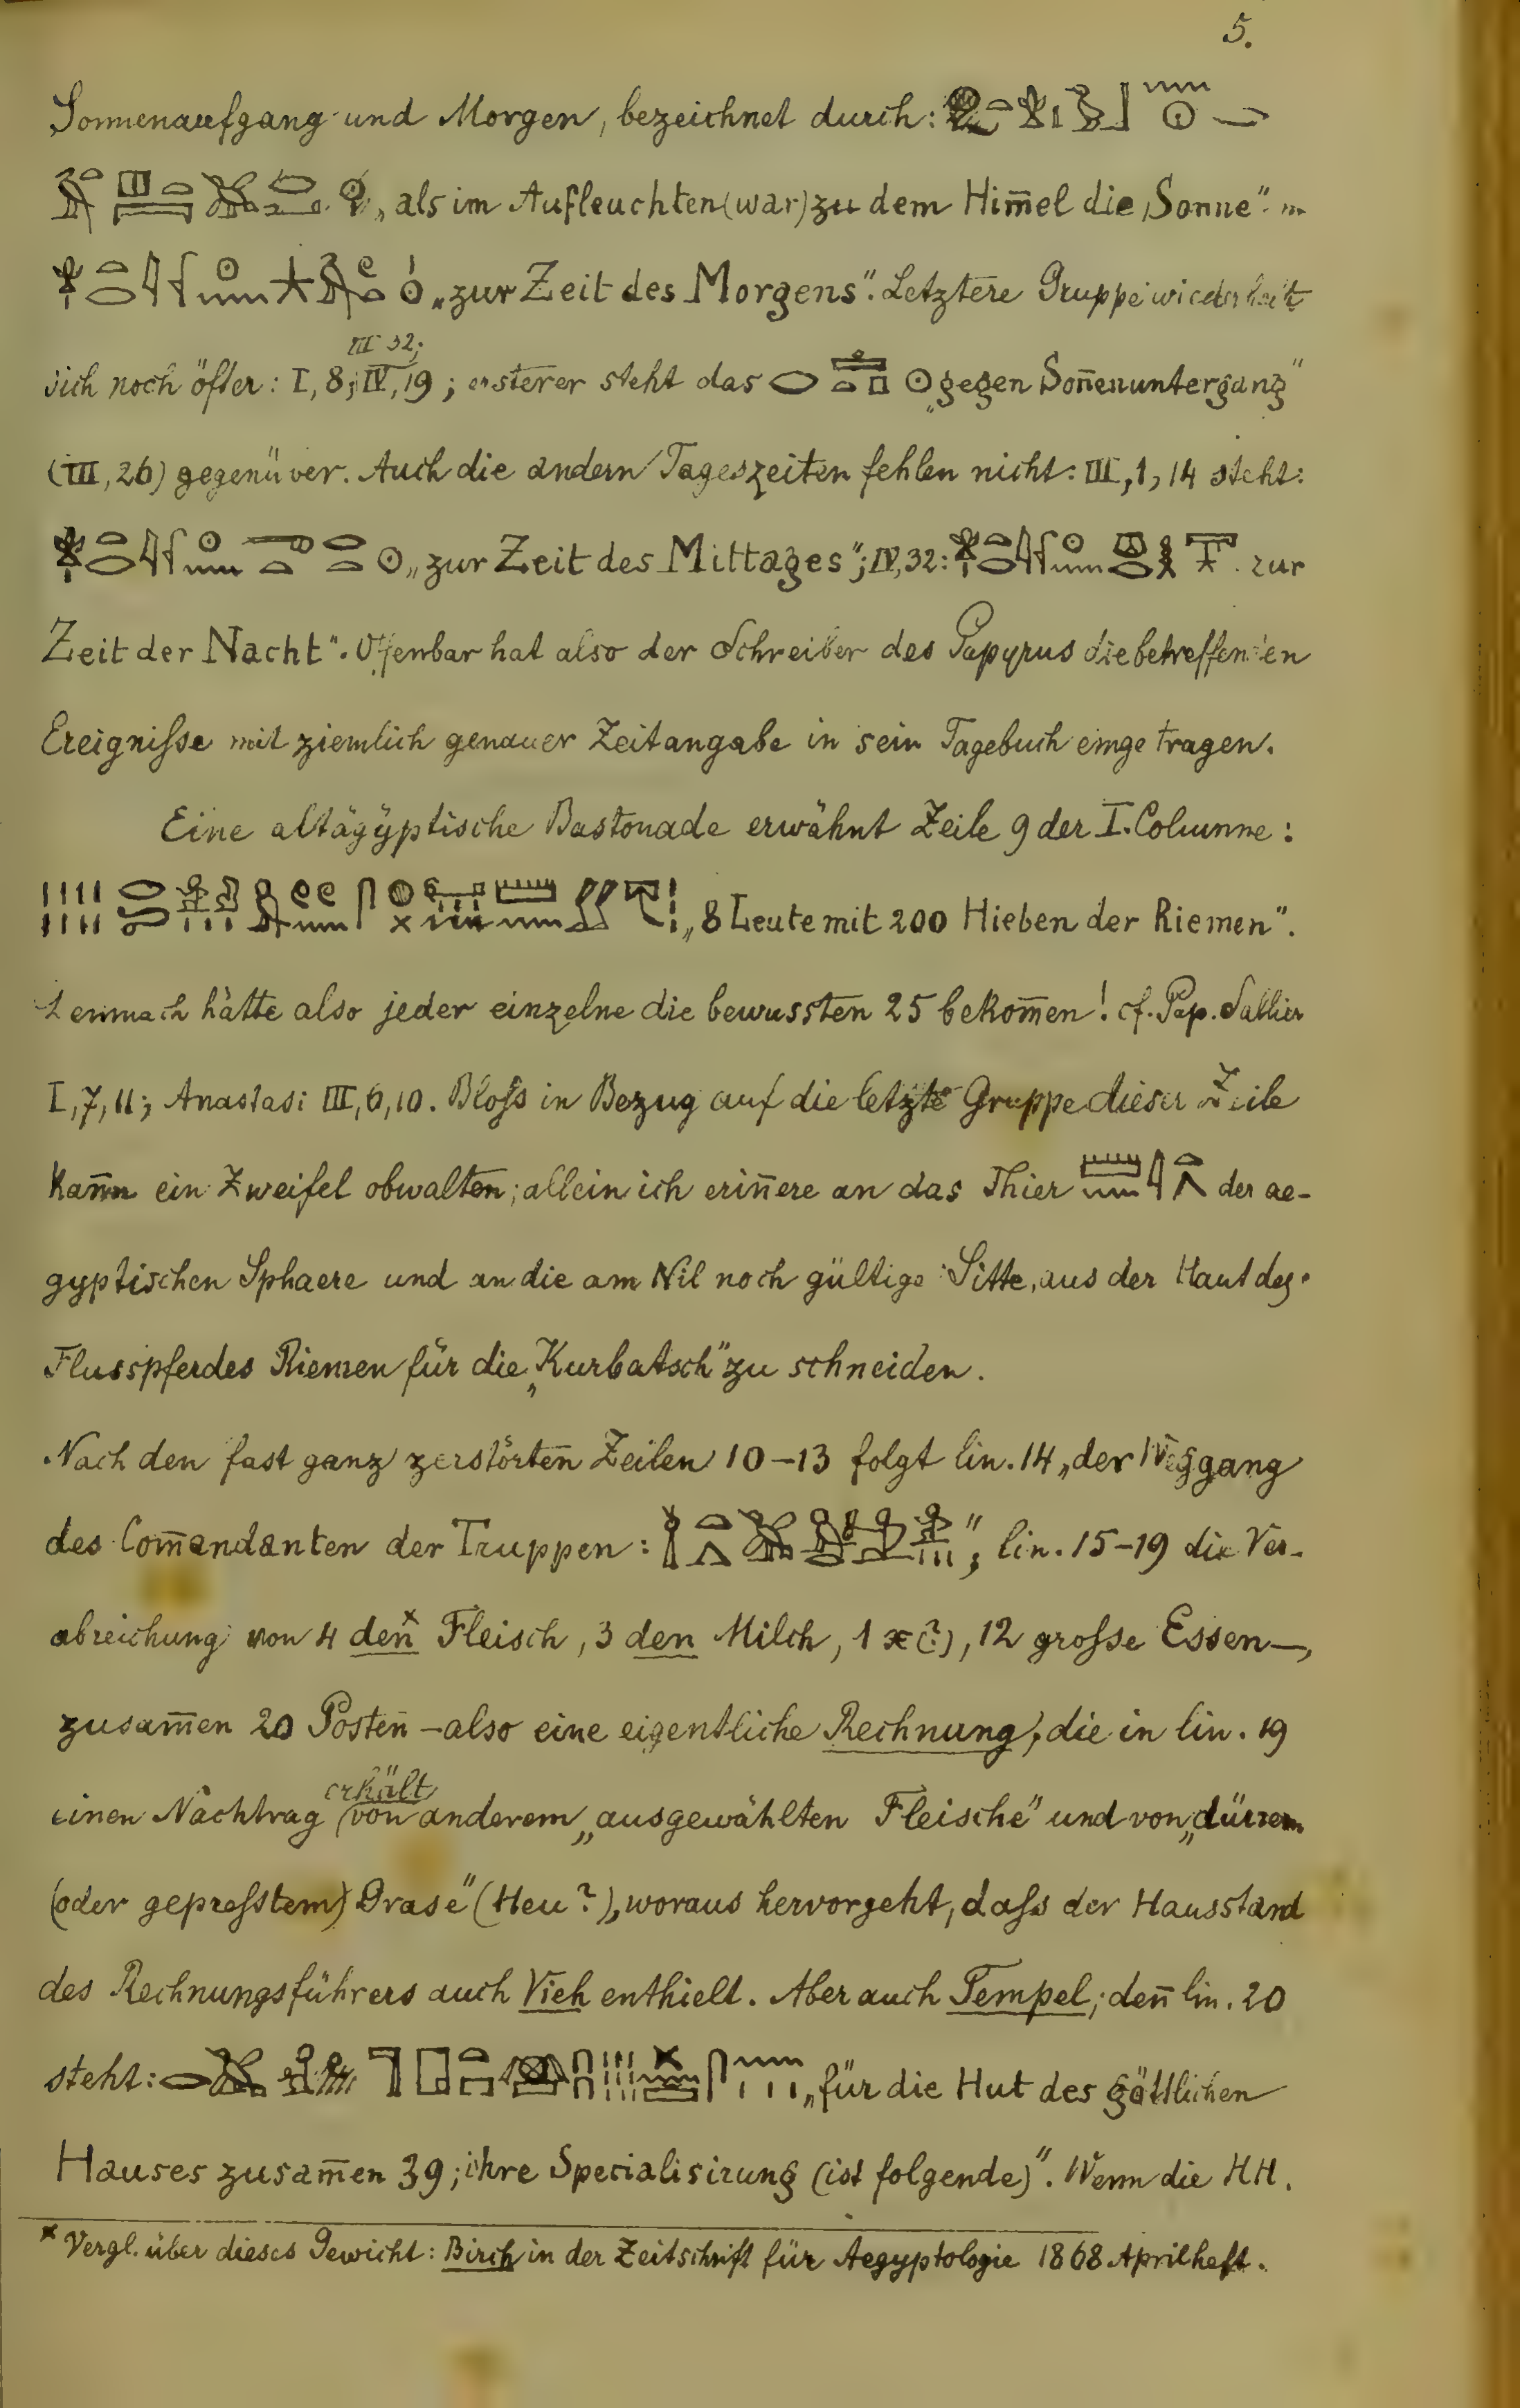 5.
Sonnenaufgang und Morgen, bezeichnet durch:
„als im Aufleuchten (war) zu dem Him̄el die Sonne".
„zur Zeit des Morgens". Letztere Gruppe wiederholt
III 32;
sich noch öfter: I, 8; IV, 19; ersterer steht das „gegen Son̄enuntergang"
(III, 26) gegenüver. Auch die andern Tageszeiten fehlen nicht: III, 1, 14 steht:
„zur Zeit des Mittages"; IV, 32: zur
Zeit der Nacht". Offenbar hat also der Schreiber des Papyrus die betreffenden
Ereigniſse mit ziemlich genauer Zeitangabe in sein Tagebuch eingetragen.
Eine altägÿptische Bastonade erwähnt Zeile 9 der I. Columne:
„8 Leute mit 200 Hieben der Riemen".
Demnach hätte also jeder einzelne die bewussten 25 bekom̄en! cf. Pap. Sallier
I, 7, 11; Anastasi III, 6, 10. Bloſs in Bezug auf die letzte Gruppe dieser Zeile
kan̄n ein Zweifel obwalten; allein ich erin̄ere an das Thier der ae-
gyptischen Sphaere und an die am Nil noch gültige Sitte, aus der Haut des
Flusspferdes Riemen für die „Kurbatsch" zu schneiden.
Nach den fast ganz zerstörten Zeilen 10–13 folgt lin. 14 „der Weggang
des Com̄andanten der Truppen: "; lin. 15–19 die Ver-
abreichung von 4 den̄ˣ Fleisch, 3 den Milch, 1 x(?), 12 groſse Essen—,
zusam̄en 20 Posten̄ – also eine eigentliche Rechnung, die in lin. 19
erhält
einen Nachtrag von anderem „ausgewählten Fleische" und von „dürrem
(oder gepreſstem) Grase" (Heu?), woraus hervorgeht, daſs der Hausstand
des Rechnungsführers auch Vieh enthielt. Aber auch Tempel; den̄ lin. 20
steht: „für die Hut des göttlichen
Hauses zusam̄en 39; ihre Specialisirung (ist folgende)". Wenn die HH.
ˣ Vergl. über dieses Gewicht: Birch in der Zeitschrift für Aegyptologie 1868 Aprilheft.